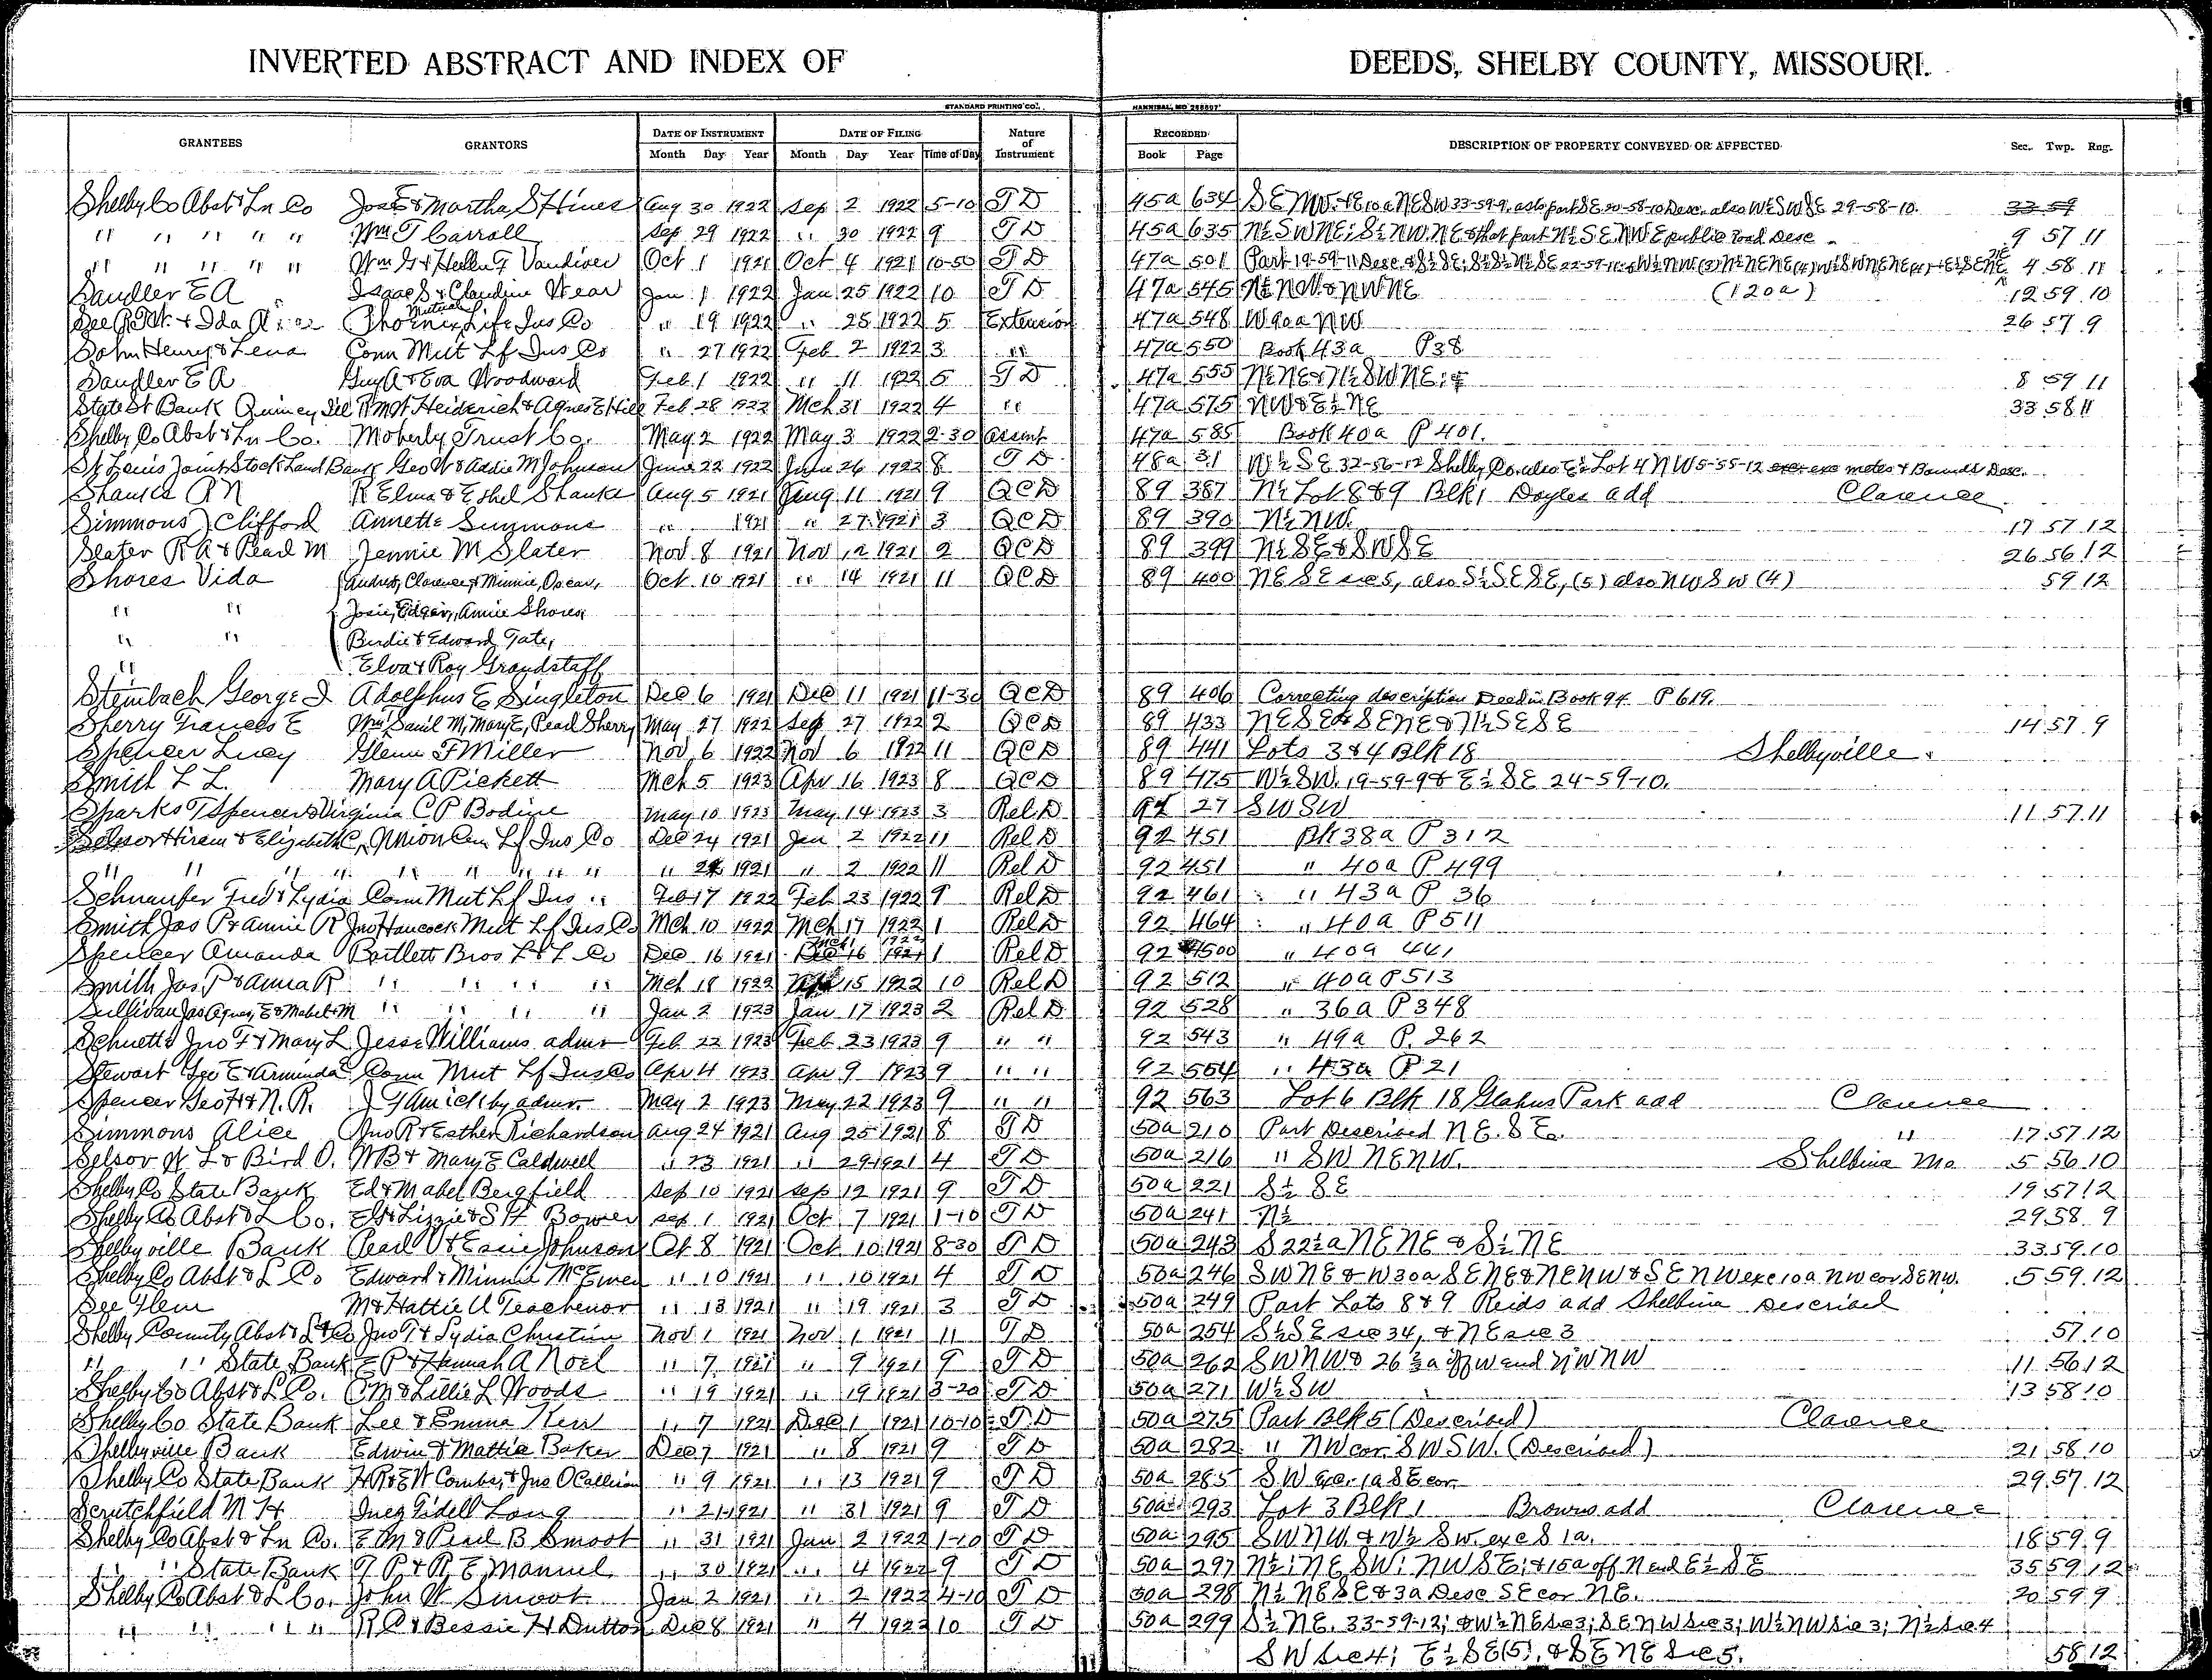 INVERTED ABSTRACT AND INDEX OF DEEDS, SHELBY COUNTY, MISSOURI.
STANDARD PRINTING CO., HANNIBAL, MO
GRANTEES GRANTORS DATE OF INSTRUMENT Month Day Year DATE OF FILING Month Day Year Time of Day Nature of Instrument RECORDED Book Page DESCRIPTION OF PROPERTY CONVEYED OR AFFECTED Sec. Twp. Rng.
Shelby Co Abst & Ln Co Jos E & Martha S Hines Aug 30 1922 Sep 2 1922 5-10 T D 45a 634 S E NW & E 10a NE SW 33-59-9, also part SE 20-58-10 Desc. also W½ SW SE 29-58-10. 33 59
" " " " " Wm T Carroll Sep 29 1922 " 30 1922 9 T D 45a 635 N½ SW NE; S½ NW NE & that part N½ S E NW E public road Desc 9 57 11
" " " " " Wm G & Hellen F Vandiver Oct 1 1921 Oct 4 1921 10-50 T D 47a 501 Part 19-59-11 Desc & S½ SE; 4 58 11
Sandler E A Isaac S & Claudine Wear Jan 1 1922 Jan 25 1922 10 T D 47a 545 N½ NW & NW NE (120a) 12 59 10
See R W & Ida Phoenix Mutual Life Ins Co " 19 1922 " 25 1922 5 Extension 47a 548 W 90a NW 26 57 9
Sohn Henry & Lena Conn Mut Lf Ins Co " 27 1922 Feb 2 1922 3 " 47a 550 Book 43a P 38
Sandler E A Guy A & Eva Woodward Feb 1 1922 " 11 1922 5 T D 47a 555 N½ NE & N½ SW NE; & 8 59 11
State St Bank Quincy Ill R M H Heiderich & Agnes E Hill Feb 28 1922 Mch 31 1922 4 " 47a 575 NW & E½ NE 33 58 11
Shelby Co Abst & Ln Co. Moberly Trust Co. May 2 1922 May 3 1922 2-30 Assmt 47a 585 Book 40a P 401.
St Louis Joint Stock Land Bank Geo W & Addie M Johnson June 22 1922 June 26 1922 8 T D 48a 31 W½ S E 32-56-12 Shelby Co. also E½ Lot 4 NW 5-55-12 metes & Bounds Desc.
Shanks A N R Elma & Ethel Shanks Aug 5 1921 Aug 11 1921 9 Q C D 89 387 N½ Lot 8 & 9 Blk 1 Doyles add Clarence
Simmons J Clifford Annette Simmons " 1921 " 27 1921 3 Q C D 89 390 N½ NW. 17 57 12
Slater R A & Pearl M Jennie M Slater Nov 8 1921 Nov 12 1921 2 Q C D 89 399 N½ SE & SW SE 26 56 12
Shores Vida Audrey, Clarence & Minnie, Oscar, Oct 10 1921 " 14 1921 11 Q C D 89 400 NE SE sec 5, also S½ SE SE, (5) also NW SW (4) 59 12
" " Josie, Edgar, Annie Shores,
" " Birdie & Edward Tate,
" Elva & Roy Grandstaff
Steinbach George J Adolphus E Singleton Dec 6 1921 Dec 11 1921 11-30 Q C D 89 406 Correcting description Deed in Book 94 P 619.
Sherry Frances E Wm, Saml M, Mary E, Pearl Sherry May 27 1922 Sep 27 1922 2 Q C D 89 433 NE SE & SE NE & N½ SE SE 14 57 9
Spencer Lucy Glenn F Miller Nov 6 1922 Nov 6 1922 11 Q C D 89 441 Lots 3 & 4 Blk 18 Shelbyville
Smith L L. Mary A Pickett Mch 5 1923 Apr 16 1923 8 Q C D 89 475 W½ SW. 19-59-9 & E½ SE 24-59-10.
Sparks T Spencer & Virginia C P Bodine May 10 1923 May 14 1923 3 Rel D 27 SW SW 11 57 11
Selsor Hiram & Elizabeth C, Union Cen Lf Ins Co Dec 24 1921 Jan 2 1922 11 Rel D 92 451 Bk 38a P 312
" " " " " " " " " 24 1921 " 2 1922 11 Rel D 92 451 " 40a P 499
Schnaufer Fred & Lydia Conn Mut Lf Ins " Feb 17 1922 Feb 23 1922 9 Rel D 92 461 " 43a P 36
Smith Jas P & Annie R Jno Hancock Mut Lf Ins Co Mch 10 1922 Mch 17 1922 1 Rel D 92 464 " 40a P 511
Spencer Amanda Bartlett Bros L & L Co Dec 16 1921 Dec 16 1921 1 Rel D 92 500 " 40a 441
Smith Jas. P & Anna R " " " " Mch 18 1922 15 1922 10 Rel D 92 512 " 40a P 513
Sullivan Jas Agnes, E & Mabel M " " " " Jan 2 1923 Jan 17 1923 2 Rel D 92 528 " 36a P 348
Schuette Jno F & Mary L Jesse Williams admr Feb 22 1923 Feb 23 1923 9 " " 92 543 " 49a P. 262
Stewart Geo E & Arminda C Conn Mut Lf Ins Co Apr 4 1923 Apr 9 1923 9 " " 92 554 " 43a P 21
Spencer Geo H & N. R. J G Amick by admr. May 2 1923 May 22 1923 9 " " 92 563 Lot 6 Blk 18 Glahns Park add Clarence
Simmons Alice Jno R & Esther Richardson Aug 24 1921 Aug 25 1921 8 T D 50a 210 Part Described N E. S E. " 17 57 12
Selsor W L & Bird O. W B & Mary E Caldwell " 23 1921 " 29 1921 4 T D 50a 216 " SW NE NW. Shelbina Mo 5 56 10
Shelby Co State Bank Ed & Mabel Bergfield Sep 10 1921 Sep 12 1921 9 T D 50a 221 S½ SE 19 57 12
Shelby Co Abst & L Co. E G & Lizzie & S H Bower Sep 1 1921 Oct 7 1921 1-10 T D 50a 241 N½ 29 58 9
Shelbyville Bank Pearl O & Essie Johnson Oct 8 1921 Oct 10 1921 8-30 T D 50a 243 S 22½ a NE NE & S½ NE 33 59 10
Shelby Co Abst & L Co Edward & Minnie McEwen " 10 1921 " 10 1921 4 T D 50a 246 SW NE & W 30a SE NE & NE NW & SE NW exc 10a NW cor SE NW. 5 59 12
See Flem M & Hattie U Teachenor " 13 1921 " 19 1921 3 T D 50a 249 Part Lots 8 & 9 Reids add Shelbina Described
Shelby County Abst & L Co Jno T & Lydia Christine Nov 1 1921 Nov 1 1921 11 T D 50a 254 S½ S E sec 34, & NE sec 3 57 10
" " State Bank E P & Hannah A Noel " 7 1921 " 9 1921 9 T D 50a 262 SW NW & 26 ⅔ a off W end NW NW 11 56 12
Shelby Co Abst & L Co. O M & Lillie L Woods " 19 1921 " 19 1921 3-20 T D 50a 271 W½ SW 13 58 10
Shelby Co State Bank Lee & Emma Kerr " 7 1921 Dec 1 1921 10-10 T D 50a 275 Part Blk 5 (Described) Clarence
Shelbyville Bank Edwin & Mattie Baker Dec 7 1921 " 8 1921 9 T D 50a 282 " NW cor. SW SW. (Described) 21 58 10
Shelby Co State Bank H R & E W Combs, & Jno O Callison " 9 1921 " 13 1921 9 T D 50a 285 S W exc. 1a SE cor. 29 57 12
Scrutchfield M H Inez Tidell Long " 21 1921 " 31 1921 9 T D 50a 293 Lot 3 Blk 1 Browns add Clarence
Shelby Co Abst & Ln Co. E M & Pearl B Smoot " 31 1921 Jan 2 1922 1-10 T D 50a 295 SW NW. & N½ SW. exc S 1a. 18 59 9
" " State Bank T P & R E Manuel " 30 1921 " 4 1922 9 T D 50a 297 N½; NE SW; NW SE; & 15a off N end E½ SE 35 59 12
Shelby Co Abst & L Co. John W Smoot Jan 2 1922 " 2 1922 4-10 T D 50a 298 N½ NE SE & 3a Desc SE cor NE. 20 59 9
" " " " R C & Bessie H Dutton Dec 8 1921 " 4 1922 10 T D 50a 299 S½ NE. 33-59-12; & W½ NE sec 3; SE NW sec 3; W½ NW sec 3; N½ sec 4
SW sec 4; E½ SE (5), & SE NE sec 5. 58 12